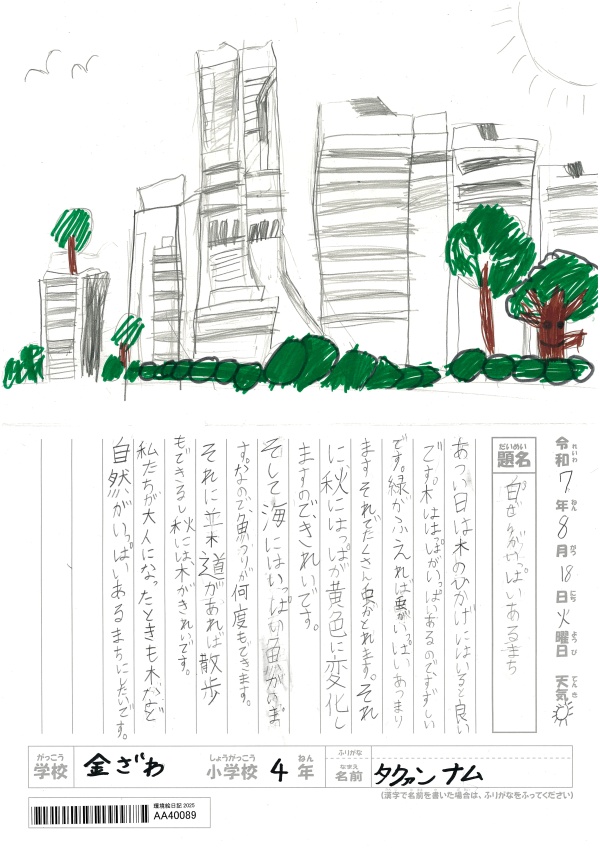 令和7年8月18日火曜日 天気
題名 自ぜんがいっぱいあるまち
あつい日は木のひかげにはいると良い
です。木ははっぱがいっぱいあるのですずしい
です。緑がふえれば虫がいっぱいあつまり
ますそれでたくさん虫がとれます。それ
に秋にはっぱが黄色に変化し
ますので、きれいです。
そして海にはいっぱい魚がいま
す。なので、魚つりが何度もできます。
それに並木道があれば散歩
もできるし秋には、木がきれいです。
私たちが大人になったときも木などの
自然がいっぱいあるまちにしたいです。
学校 金ざわ 小学校 4年
ふりがな
名前 タクァン ナム
(漢字で名前を書いた場合は、ふりがなをふってください)
環境絵日記 2025
AA40089